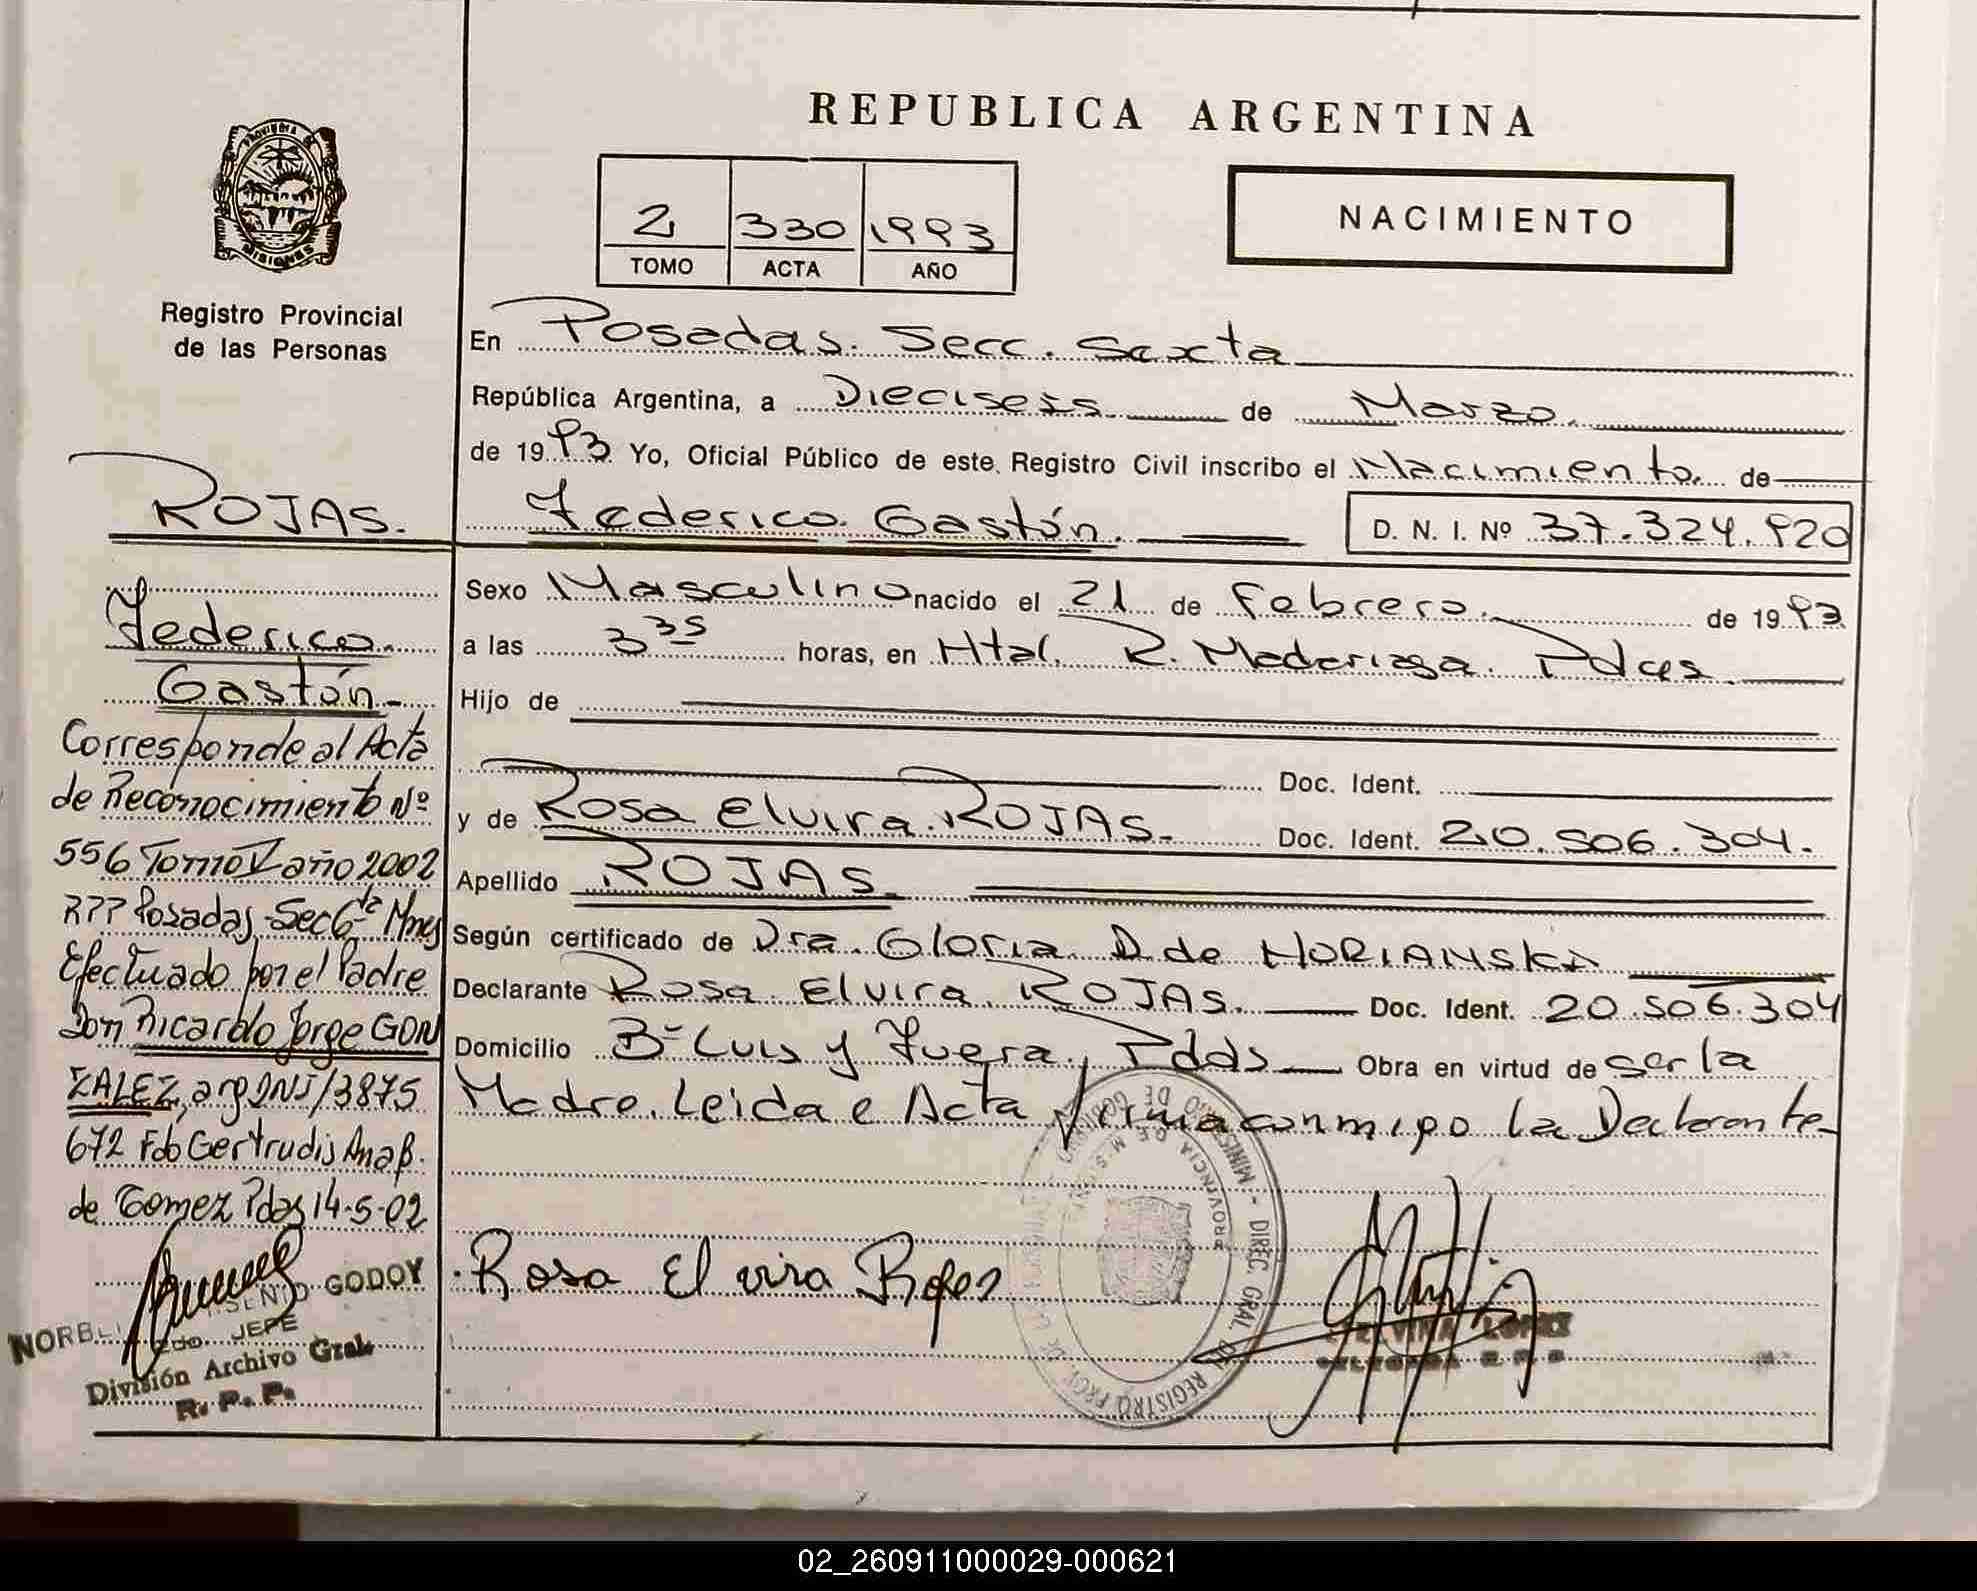 REPUBLICA ARGENTINA
PROVINCIA DE
MISIONES
Registro Provincial
de las Personas
2 330 1993
TOMO ACTA AÑO
NACIMIENTO
En Posadas. Secc. Sexta
República Argentina, a Dieciseis de Marzo.
de 1993 Yo, Oficial Público de este Registro Civil inscribo el Nacimiento. de
Federico Gastón. D. N. I. Nº 37.324.920
Sexo Masculino nacido el 21 de Febrero. de 1993
a las 3 35 horas, en Htal. R. Madariaga. Pdas
Hijo de
Doc. Ident.
y de Rosa Elvira ROJAS. Doc. Ident. 20.506.304.
Apellido ROJAS.
Según certificado de Dra. Gloria D. de
Declarante Rosa Elvira ROJAS. Doc. Ident. 20.506.304
Domicilio Bº Luis y Fuera, Pdas Obra en virtud de ser la
Madre. Leida e Acta firma conmigo la Declarante
Rosa Elvira Rojas
ROJAS.
Federico.
Gastón
Corresponde al Acta
de Reconocimiento Nº
556 Tomo V año 2002
RPP Posadas Sec 6ta Mnes
Efectuado por el Padre
Don Ricardo Jorge GON
ZALEZ, arg DNI/3875
672 Fdo Gertrudis Ana B.
de Gomez Pdas 14-5-02
GODOY
JEFE
División Archivo Gral.
R. P. P.
LOPEZ
02_260911000029-000621